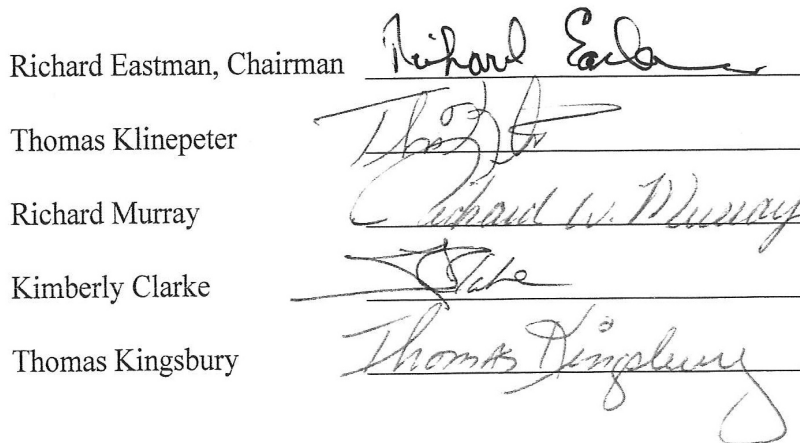 Richard Eastman, Chairman Richard
Thomas Klinepeter
Richard Murray Richard W. Murray
Kimberly Clarke
Thomas Kingsbury Thomas Kingsbury